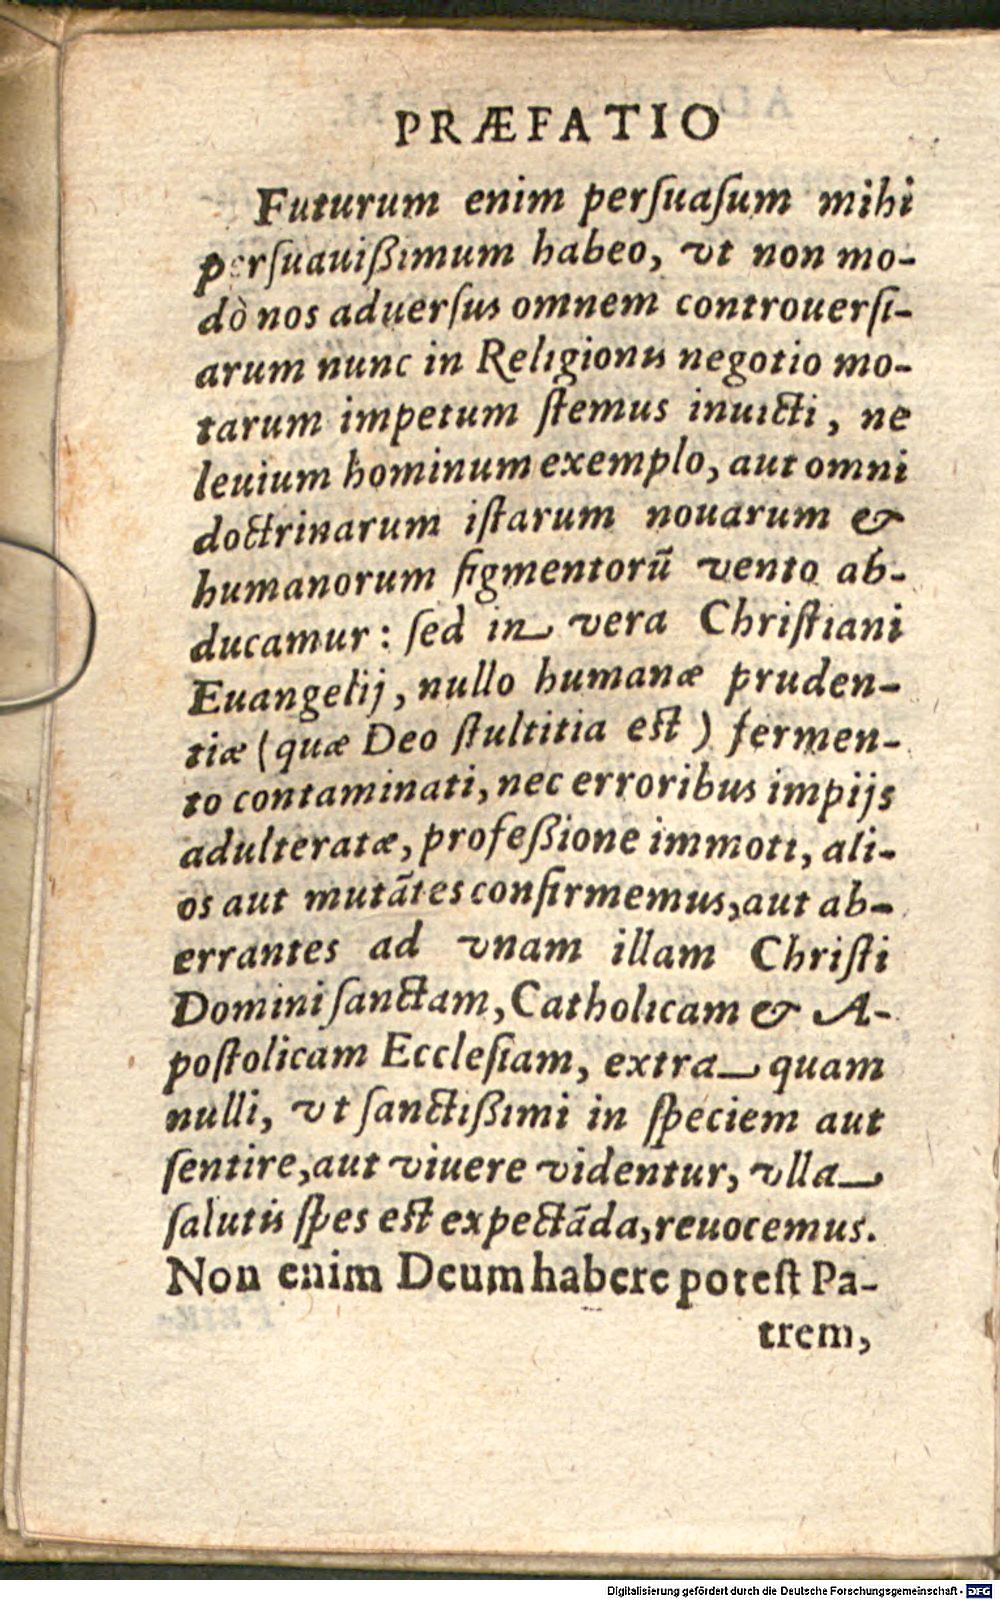 PRÆFATIO
Futurum enim perſuaſum mihi
perſuauiſſimum habeo, vt non mo-
dò nos aduerſus omnem controuerſi-
arum nunc in Religionis negotio mo-
tarum impetum ſtemus inuicti, ne
leuium hominum exemplo, aut omni
doctrinarum iſtarum nouarum &
humanorum figmentorũ vento ab-
ducamur: ſed in vera Chriſtiani
Euangelij, nullo humanæ pruden-
tiæ (quæ Deo ſtultitia est) fermen-
to contaminati, nec erroribus impijs
adulteratæ, profeſſione immoti, ali-
os aut mutãtes confirmemus, aut ab-
errantes ad vnam illam Chriſti
Domini ſanctam, Catholicam & A-
poſtolicam Eccleſiam, extra quam
nulli, vt ſanctiſſimi in ſpeciem aut
ſentire, aut viuere videntur, vlla
ſalutis ſpes est expectãda, reuocemus.
Non enim Deum habere poteſt Pa-
trem,
Digitalisierung gefördert durch die Deutsche Forschungsgemeinschaft - DFG